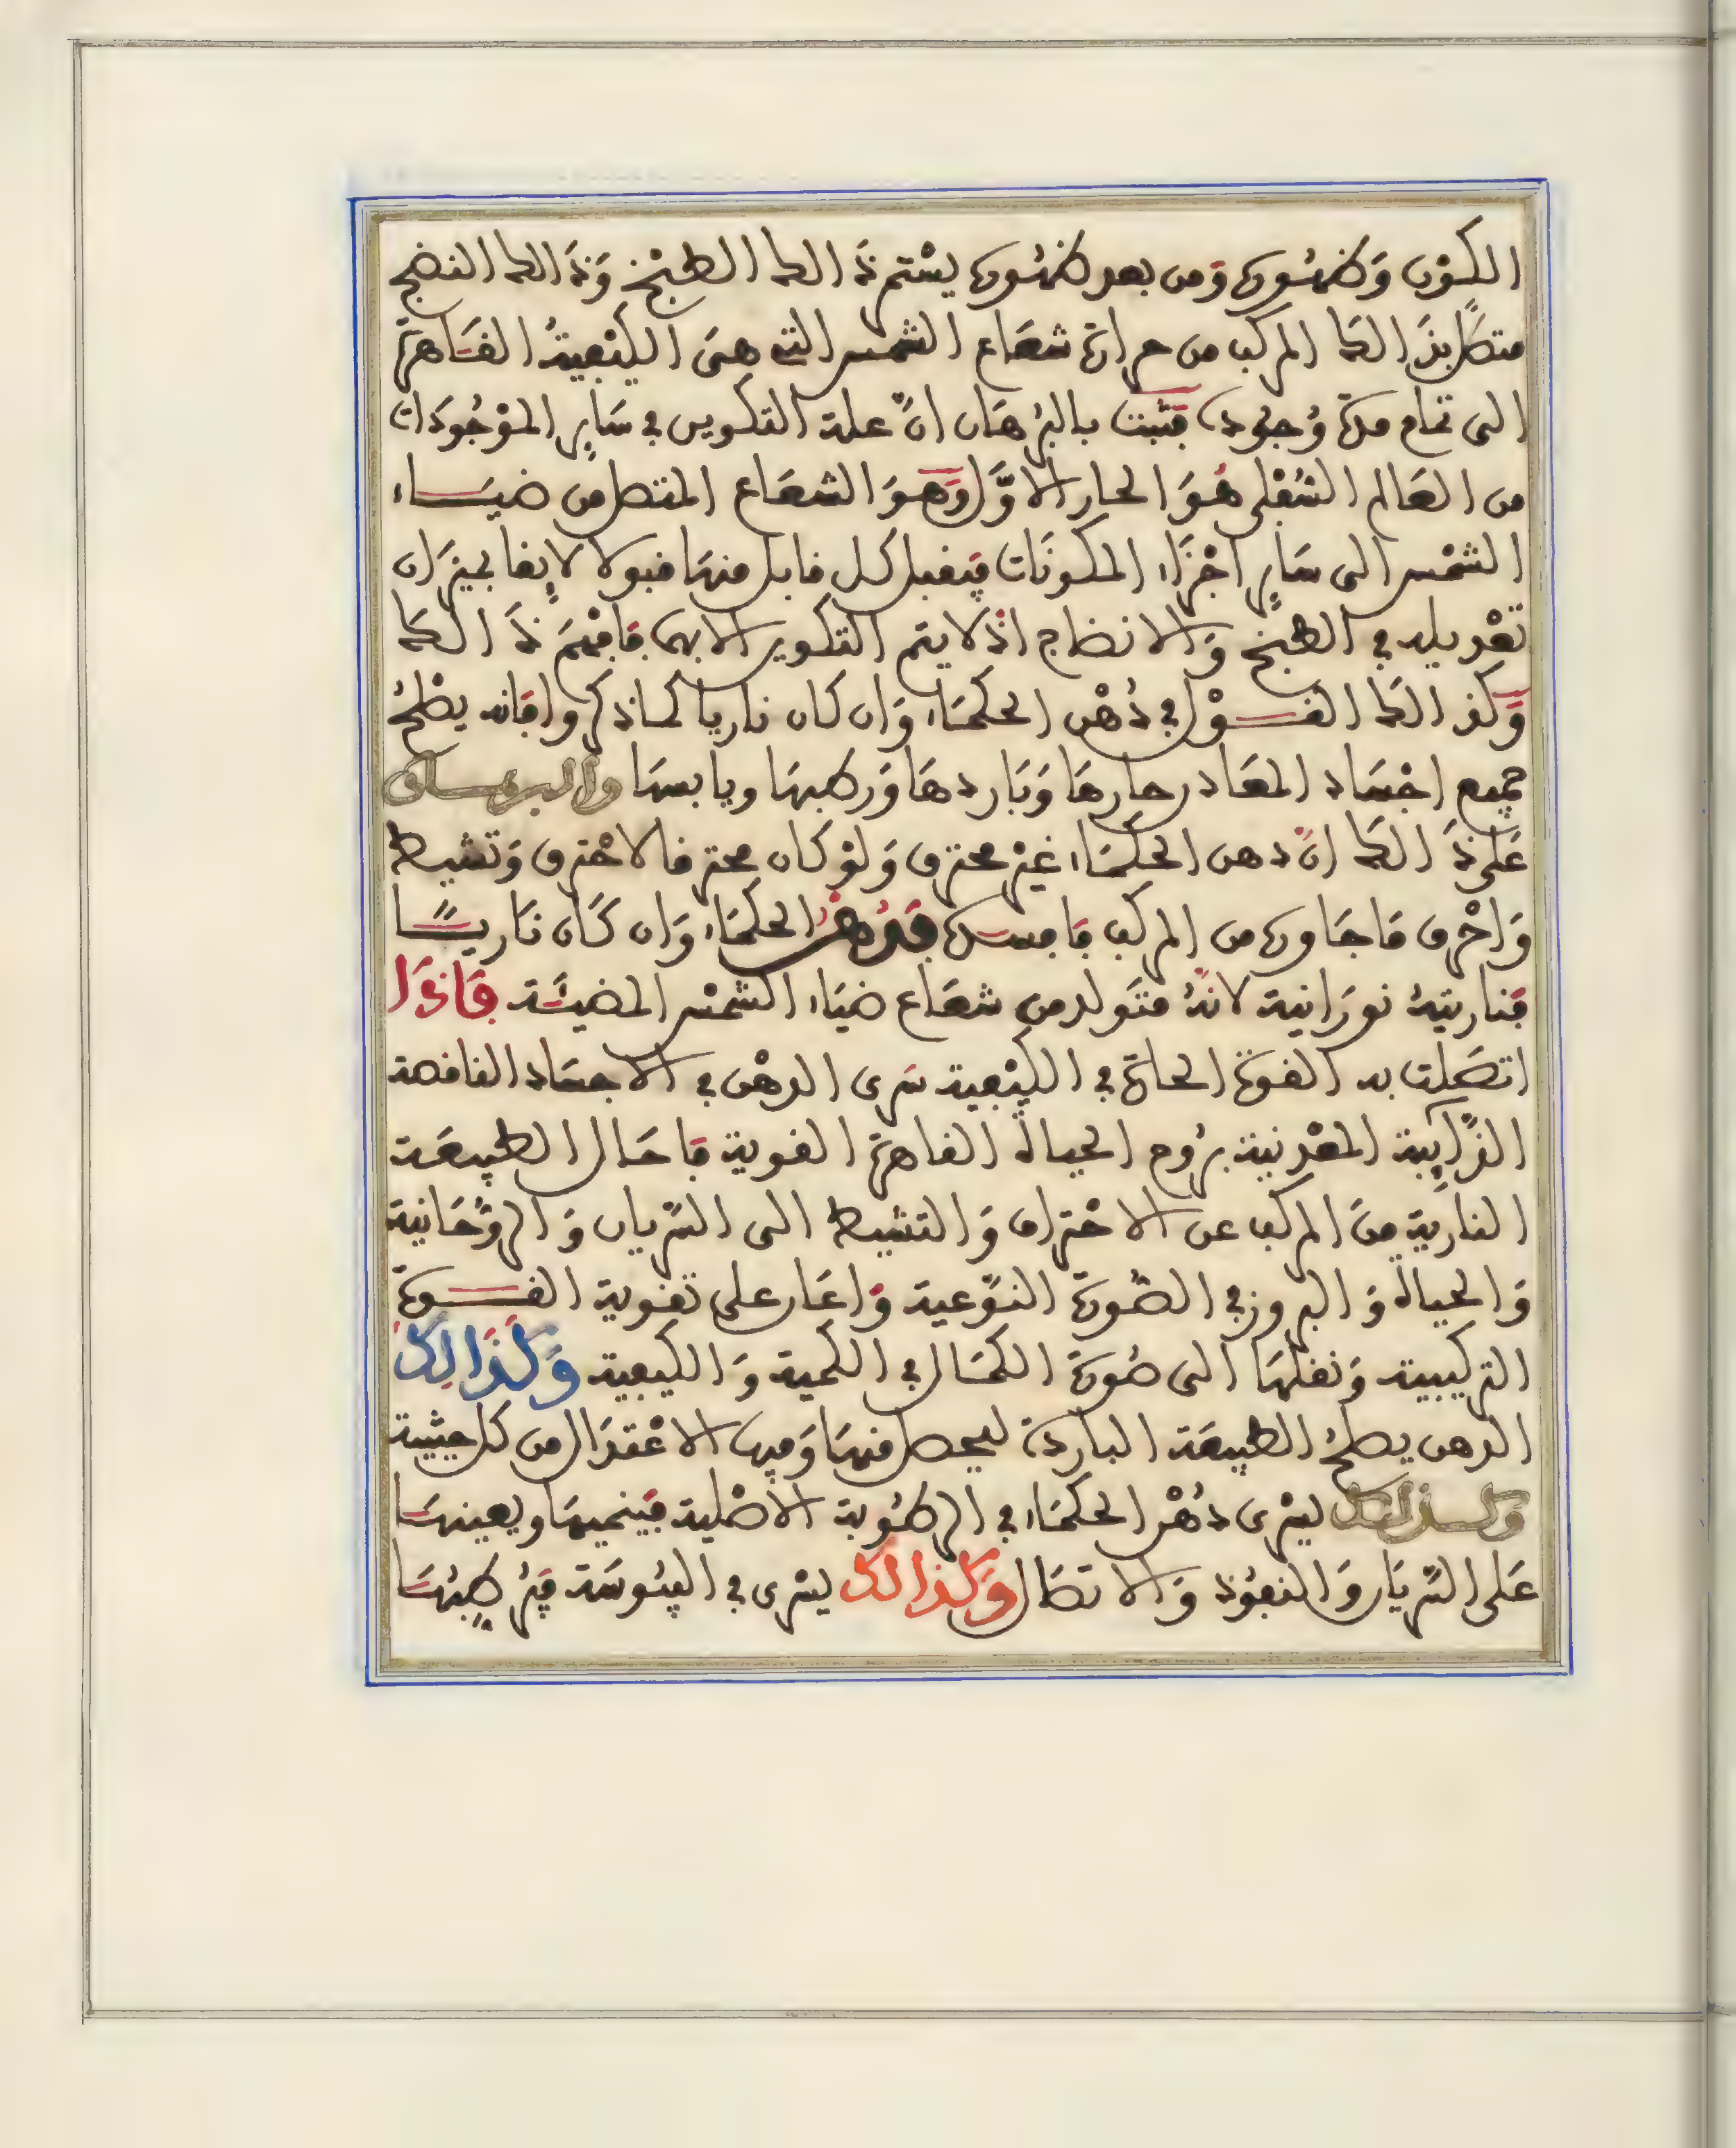 الكون وظهوره ومن بعد ظهوره يستمر ذالك الطبخ وذالك النضج
متصلا بذالك المركب من حرارة شعاع الشمس التي هي الكيفية الفاهرة
الى تمام مدة وجوده فثبت بالبرهان ان علة التكوين في ساير الموجودات
من العالم السفلي هو الحار الاول وهو الشعاع المتصل من ضياء
الشمس الى ساير اجزاء المكونات فيقبل كل قابل منها قبولا لايقا بميزان
تعديله في الطبخ والانضاج اذ لا يتم التكوين الا بهما فافهم ذالك
وكذالك القول في دهن الحكماء وان كان ناريا كما ذكروا فانه يصلح
جميع اجساد المعادن حارها وباردها ورطبها ويابسها والبرهان
على ذالك ان دهن الحكماء غير محترق ولو كان محترقا لاحترق وتشيط
واحرق ما جاوره من المركب فافسده فدهن الحكماء وان كان ناريا
فناريته نورانية لانه متولد من شعاع ضياء الشمس المضيئة فاذا
اتصلت به القوة الحارة في الكيفية سرى الدهن في الاجساد الناقصة
الذايبة المعدنية بروح الحياة القاهرة القوية فاحال الطبيعة
النارية من المركب عن الاحتراق والتشيط الى السريان والروحانية
والحياة والبروز في الصورة النوعية واعان على تقوية القوة
التركيبية ونقلها الى صورة الكمال في الكمية والكيفية وكذالك
الدهن يصلح الطبيعة الباردة ليحصل منها وفيها الاعتدال من كل حيثية
وكذالك يسرى دهن الحكماء في الرطوبة الاصلية فينميها ويعينها
على السريان والنفوذ والاتصال وكذالك يسرى في اليبوسة فيرطبها